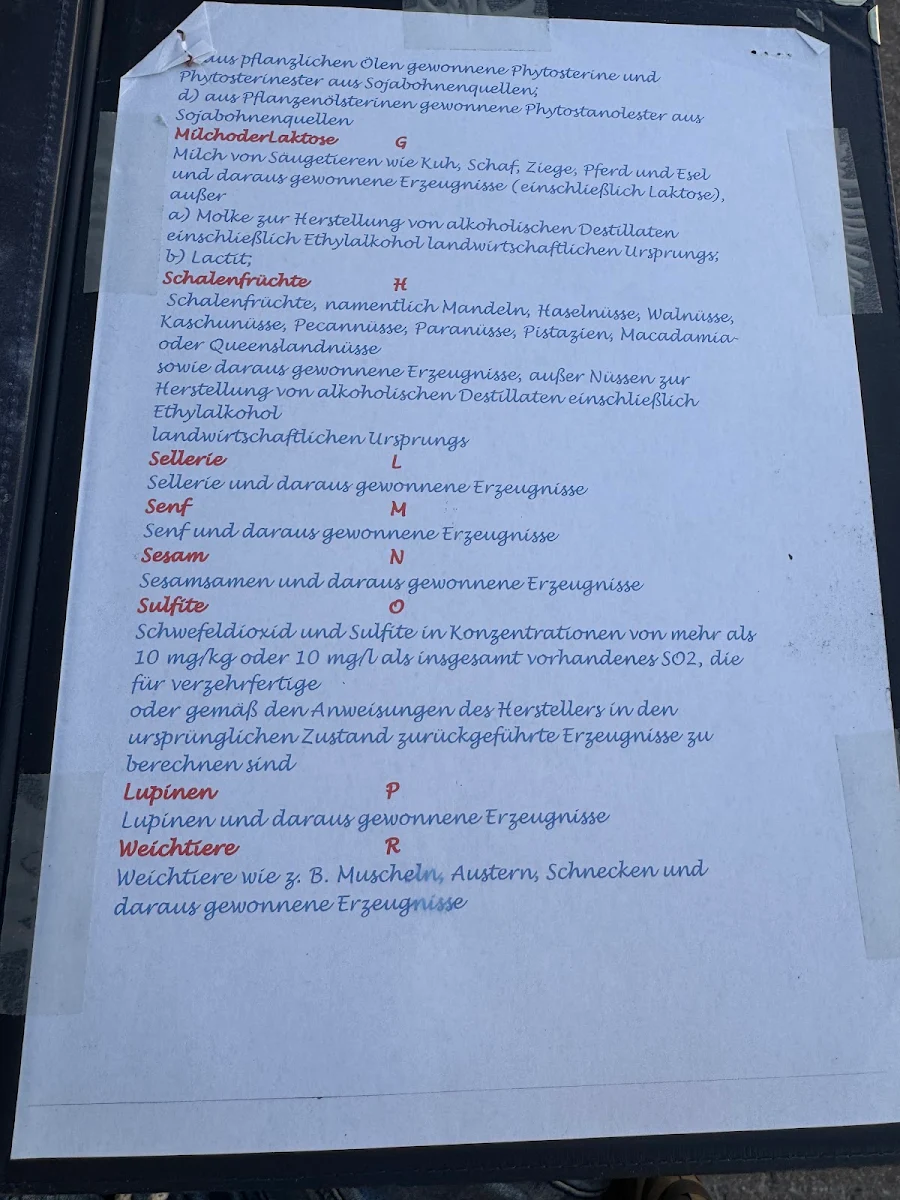 aus pflanzlichen Ölen gewonnene Phytosterine und
Phytosterinester aus Sojabohnenquellen;
d) aus Pflanzenölsterinen gewonnene Phytostanolester aus
Sojabohnenquellen
MilchoderLaktose G
Milch von Säugetieren wie Kuh, Schaf, Ziege, Pferd und Esel
und daraus gewonnene Erzeugnisse (einschließlich Laktose),
außer
a) Molke zur Herstellung von alkoholischen Destillaten
einschließlich Ethylalkohol landwirtschaftlichen Ursprungs;
b) Lactit;
Schalenfrüchte H
Schalenfrüchte, namentlich Mandeln, Haselnüsse, Walnüsse,
Kaschunüsse, Pecannüsse, Paranüsse, Pistazien, Macadamia-
oder Queenslandnüsse
sowie daraus gewonnene Erzeugnisse, außer Nüssen zur
Herstellung von alkoholischen Destillaten einschließlich
Ethylalkohol
landwirtschaftlichen Ursprungs
Sellerie L
Sellerie und daraus gewonnene Erzeugnisse
Senf M
Senf und daraus gewonnene Erzeugnisse
Sesam N
Sesamsamen und daraus gewonnene Erzeugnisse
Sulfite O
Schwefeldioxid und Sulfite in Konzentrationen von mehr als
10 mg/kg oder 10 mg/l als insgesamt vorhandenes SO2, die
für verzehrfertige
oder gemäß den Anweisungen des Herstellers in den
ursprünglichen Zustand zurückgeführte Erzeugnisse zu
berechnen sind
Lupinen P
Lupinen und daraus gewonnene Erzeugnisse
Weichtiere R
Weichtiere wie z. B. Muscheln, Austern, Schnecken und
daraus gewonnene Erzeugnisse